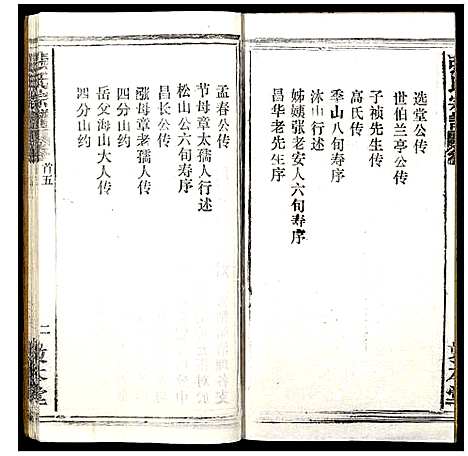 选堂公传
世伯兰亭公传
子祯先生传
高氏传
季山八旬寿序
沐山行述
姊姨张老安人六旬寿序
昌华老先生序
孟春公传
节母章太孺人行述
松山公六旬寿序
昌长公传
涨母章老孺人传
岳父海山大人传
四分山约
四分山约
张氏宗谱
首五
二
敦本堂